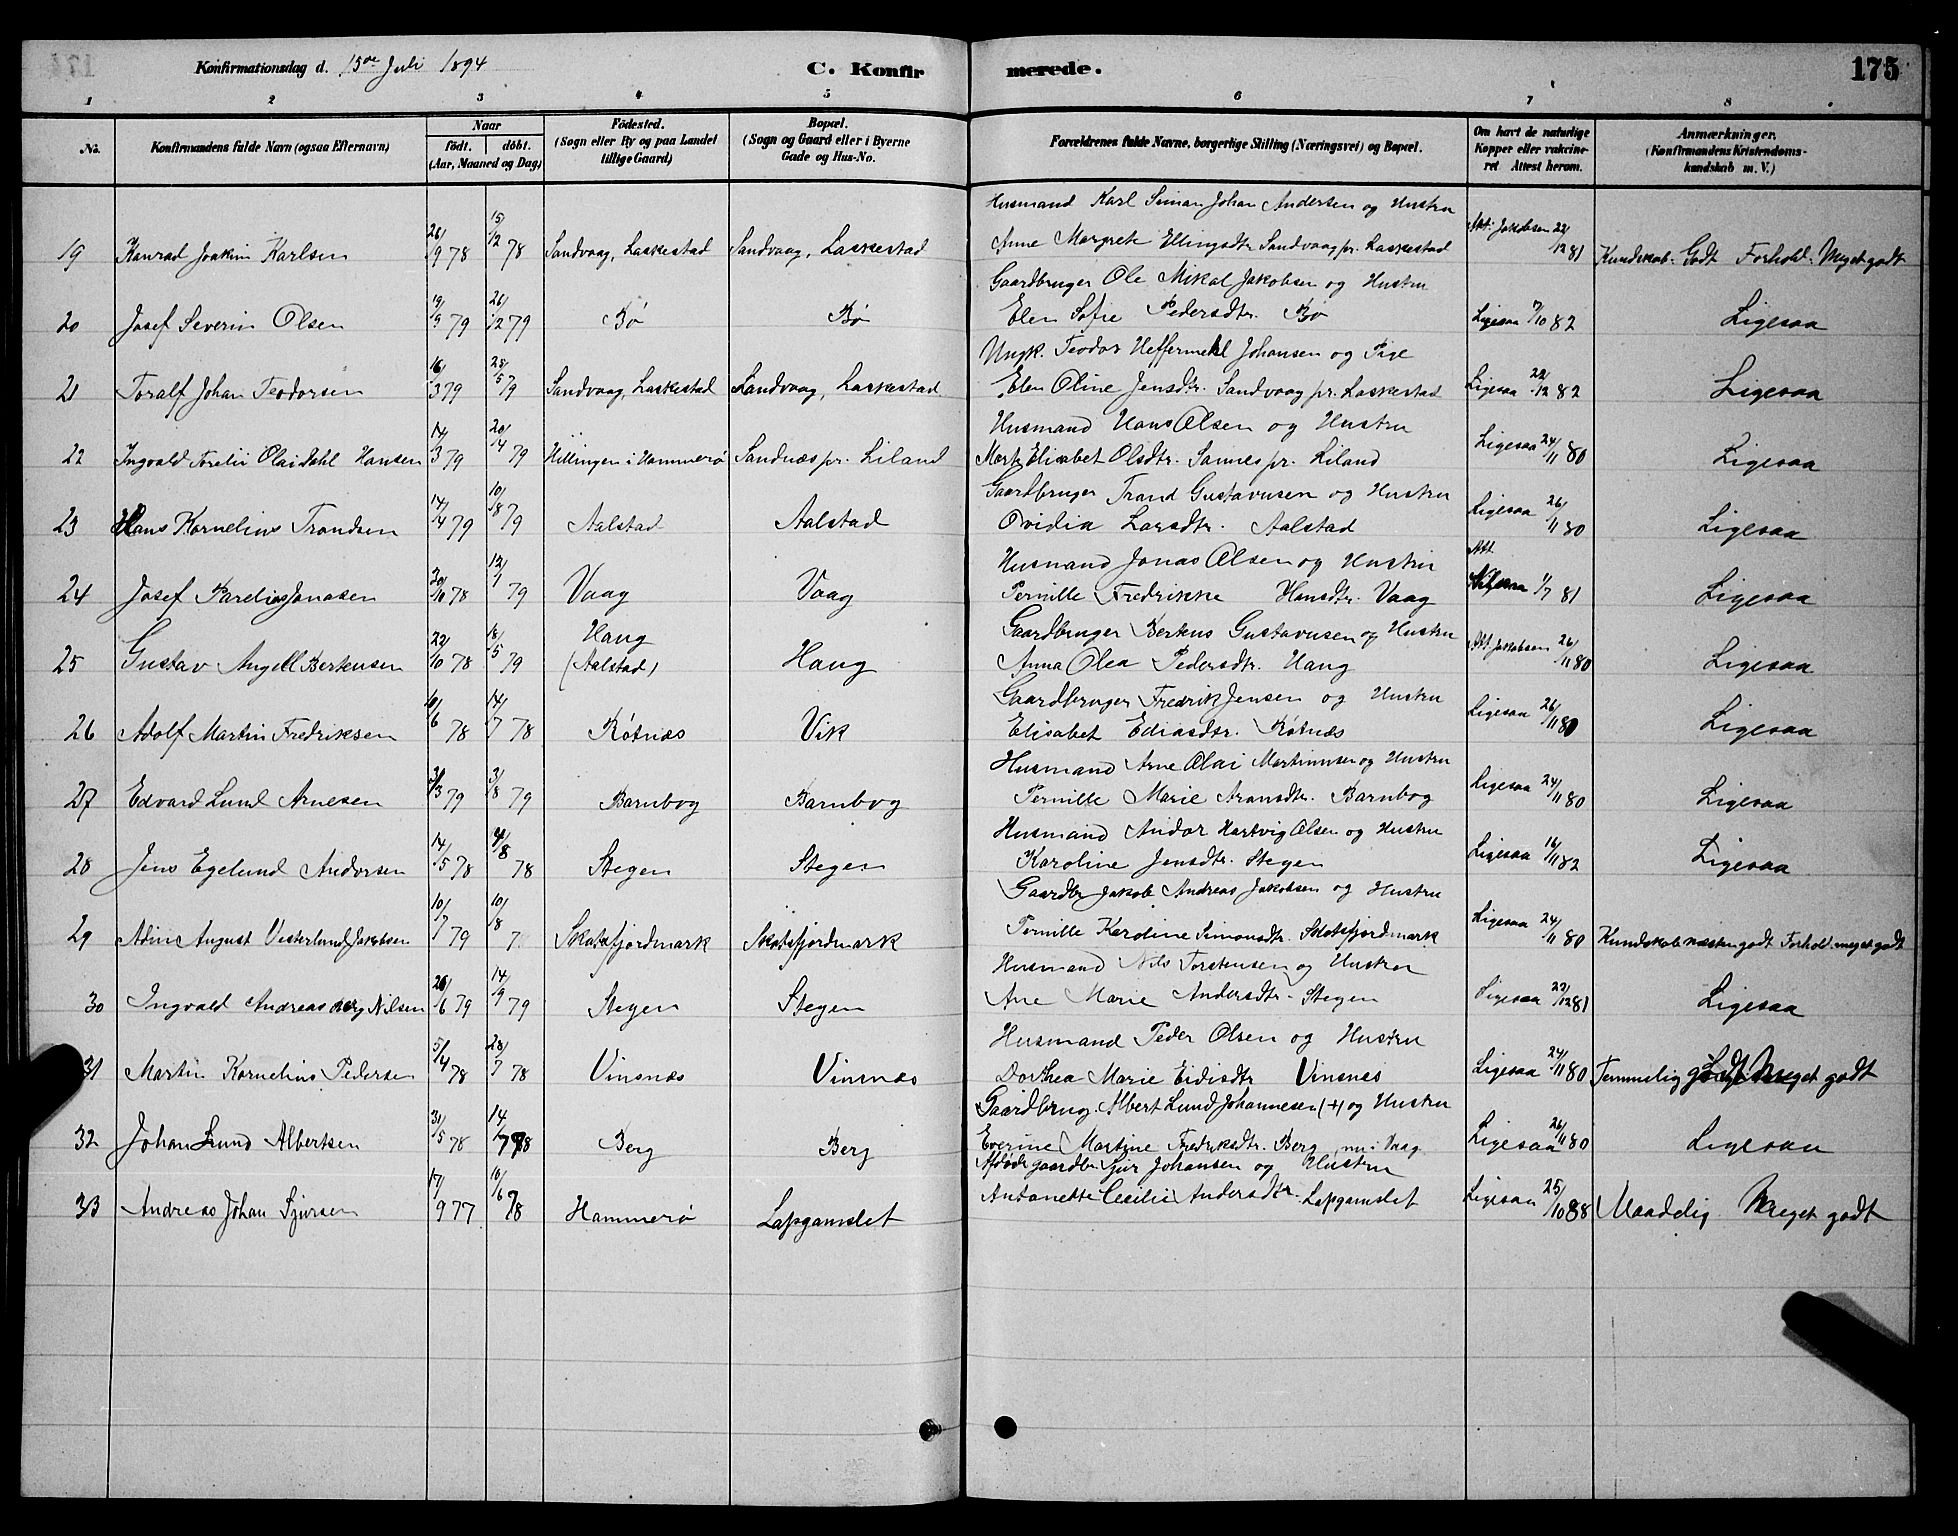 Konfirmationsdag d. 15de Juli 1894
C. Konfirmerede.
175
1 2 3 4 5 6 7 8
No. Konfirmandens fulde Navn (ogsaa Efternavn) Naar født. døbt. (Aar, Maaned og Dag) Fødested. (Sogn eller By og paa Landet tillige Gaard) Bopæl. (Sogn og Gaard eller i Byerne Gade og Hus-No. Forældrenes fulde Navne, borgerlige Stilling (Næringsvei) og Bopæl. Om havt de naturlige Kopper eller vakcineret Attest herom. Anmærkninger. (Konfirmandens Kristendomskundskab m. V.)
Husmand Karl Simon Johan Andersen og Hustru
19 Konrad Joakim Karlsen 26/9 78 15/12 78 Sandvaag, Laskestad Sandvaag, Laskestad Anne Margrete Ellingsdtr Sandvaag pr. Laskestad Att: Jakobsen 22/12 81 Kundskab. Godt Forhold. Meget godt
Gaardbruger Ole Mikal Jakobsen og Hustru
20 Josef Severin Olsen 19/9 79 26/12 79 Bø Bø Elen Sofie Pedersdtr. Bø Ligesaa 7/10 82 Ligesaa
Ungk. Teodor Heffermehl Johansen og Pige
21 Toralf Johan Teodorsen 16/3 79 25/5 79 Sandvaag, Laskestad Sandvaag, Laskestad Elen Oline Jensdtr. Sandvaag pr. Laskestad Ligesaa 22/12 82 Ligesaa
Husmand Hans Olsen og Hustru
22 Ingvald Olai Dahl Hansen 14/3 79 20/4 79 Hillingen i Hammerø Sandnæs pr. Liland Elisabet Olsdtr. Sannes pr. Liland Ligesaa 24/11 80 Ligesaa
Gaardbruger Trand Gustavusen og Hustru
23 Hans Kornelius Trondsen 14/4 79 10/8 79 Aalstad Aalstad Ovidia Larsdtr. Aalstad Ligesaa 26/11 80 Ligesaa
Husmand Jonas Olsen og Hustru Att
24 Josef Parelius Jonasen 30/10 78 12/1 79 Vaag Vaag Pernille Fredrikke Hansdtr. Vaag 1/7 81 Ligesaa
Gaardbruger Berteus Gustavusen og Hustru
25 Gustav Angell Berteusen 22/10 78 18/5 79 Haug (Aalstad) Haug Anna Olea Pedersdtr. Haug Att Jakobsen 26/11 80 Ligesaa
Gaardbruger Fredrik Jensen og Hustru
26 Adolf Martin Fredriksen 10/6 78 14/7 78 Røtnæs Vik Elisabet Ediasdtr. Røtnæs Ligesaa 26/11 80 Ligesaa
Husmand Arne Olai Martinusen og Hustru
27 Edvard Lund Arnesen 31/3 79 3/8 79 Barnbog Barnbog Pernille Marie Aronsdtr. Barnbog Ligesaa 24/11 80 Ligesaa
Husmand Andor Hartvig Olsen og Hustru
28 Jens Egelund Andorsen 14/5 78 4/8 78 Stegen Stegen Karoline Jensdtr. Stegen Ligesaa 16/11 82 Ligesaa
Gaardbr Jakob Andreas Jakobsen og Hustru
29 Adin August Vesterlund Jakobsen 10/7 79 10/8 7 Skotsfjordmark Skotsfjordmark Pernille Karoline Simonsdtr. Skotsfjordmark Ligesaa 24/11 80 Kundskab næsten godt Forhold. meget godt
Husmand Nils Torstensen og Hustru
30 Ingvald Andreas Nilsen 26/6 79 14/9 79 Stegen Stegen Ane Marie Andersdtr. Stegen Ligesaa 22/12 81 Ligesaa
Husmand Peder Olsen og Hustru
31 Martin Kornelius Pedersen 5/4 78 28/7 78 Vinsnæs Vinsnæs Dorthea Marie Eidisdtr Vinsnes Ligesaa 24/11 80 Temmelig godt Meget godt
Gaardbrug. Albert Lund Johannesen (+) og Hustru
32 Johan Lund Albertsen 31/5 78 14/7 78 Berg Berg Everine Martine Fredriksdtr. Berg, nu i Vaag Ligesaa 26/11 80 Ligesaa
Afdøde gaardbr Sjur Johansen og Hustru
33 Andreas Johan Sjursen 17/9 77 10/6 78 Hammerø Lapgamslet Antonette Cecilie Andersdtr. Lapgamslet Ligesaa 25/10 88 Maadelig Meget godt